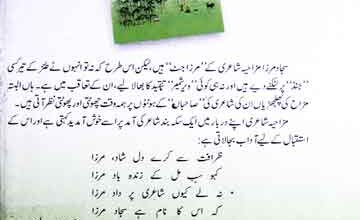 سجاد مرزا مزاحیہ شاعری کے ”مرزا جٹ“ ہیں، لیکن اس طرح کہ نہ تو انہوں نے طنز کے تیر کسی
”جنڈ“ پر لٹکے دیے ہیں اور نہ ہی کوئی ”ویر شمیر“ تنقید کا بھالا لیے، ان کے تعاقب میں ہے۔ ہاں البتہ
مزاح کی پھلجھڑیاں ان کی شاعری کی ”صاحباں“ کے ہونٹوں پر ہمہ وقت چھوٹتی اور پھوٹتی نظر آتی ہیں۔
مزاحیہ شاعری اپنے دربار میں ایک سکہ بند شاعر کی آمد پر اسے خوش آمدید کہتی ہے اور اس کے
استقبال کے لیے آداب بجا لاتی ہے:
ظرافت سے کرے دل شاد، مرزا
کہو سب مل کے زندہ باد مرزا
نہ لے کیوں شاعری پر داد مرزا
کہ اس کا نام ہے سجاد مرزا